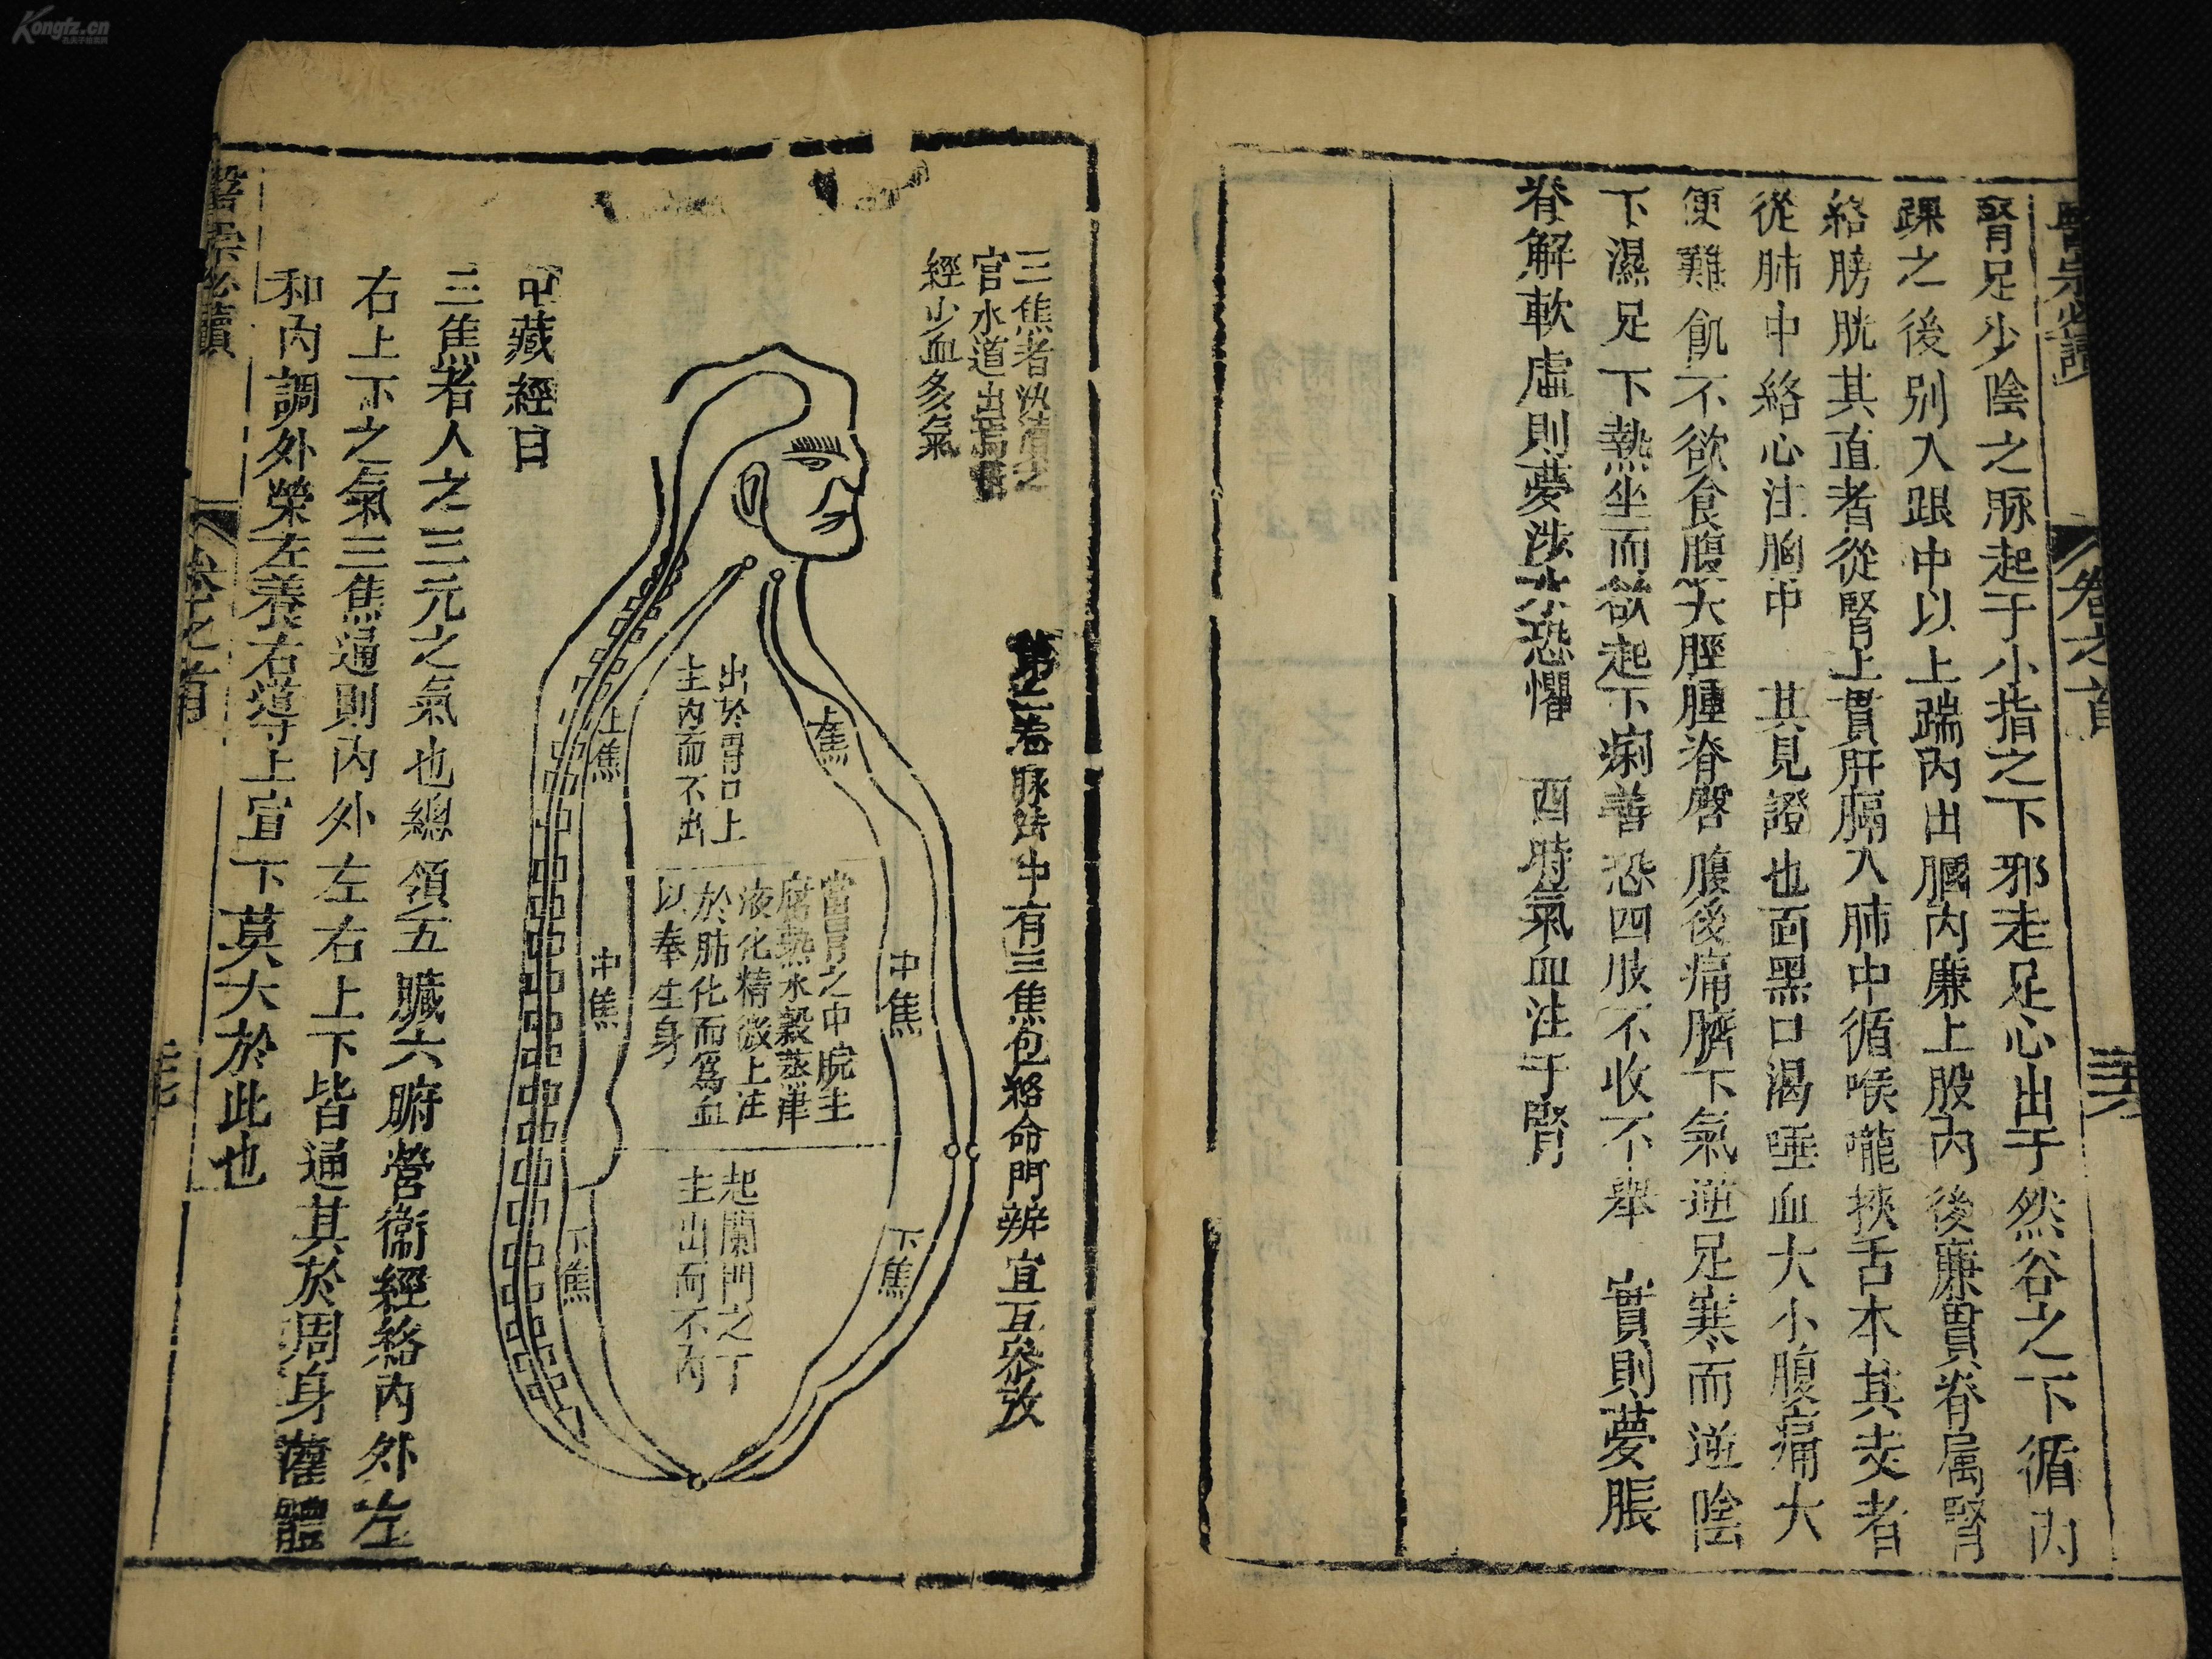 醫宗必讀
卷之首
腎足少陰之脉起于小指之下邪走足心出于然谷之下循內
踝之後別入跟中以上踹內出膕內廉上股內後廉貫脊属腎
絡膀胱其直者從腎上貫肝膈入肺中循喉嚨挾舌本其支者
從肺中絡心注胸中 其見證也面黑口渴唾血大小腹痛大
便難飢不欲食腹大脛腫脊臀腹後痛臍下氣逆足寒而逆陰
下濕足下熱坐而欲起下痢善恐四肢不收不舉 實則夢脹
脊解軟虛則夢涉水恐懼 酉時氣血注于腎
三焦者決瀆之
官水道出焉
經少血多氣
第二卷脉法中有三焦包絡命門辨宜互參攷
上焦
中焦
下焦
出於胃口上
主內而不出
當胃之中脘主
腐熟水穀蒸津
液化精微上注
於肺化而為血
以奉生身
起闌門之下
主出而不內
上焦
中焦
下焦
中藏經曰
三焦者人之三元之氣也總領五臟六腑營衞經絡內外左
右上下之氣三焦通則內外左右上下皆通其於周身灌體
和內調外榮左養右導上宣下莫大於此也
醫宗必讀
卷之首
Kongfz.cn